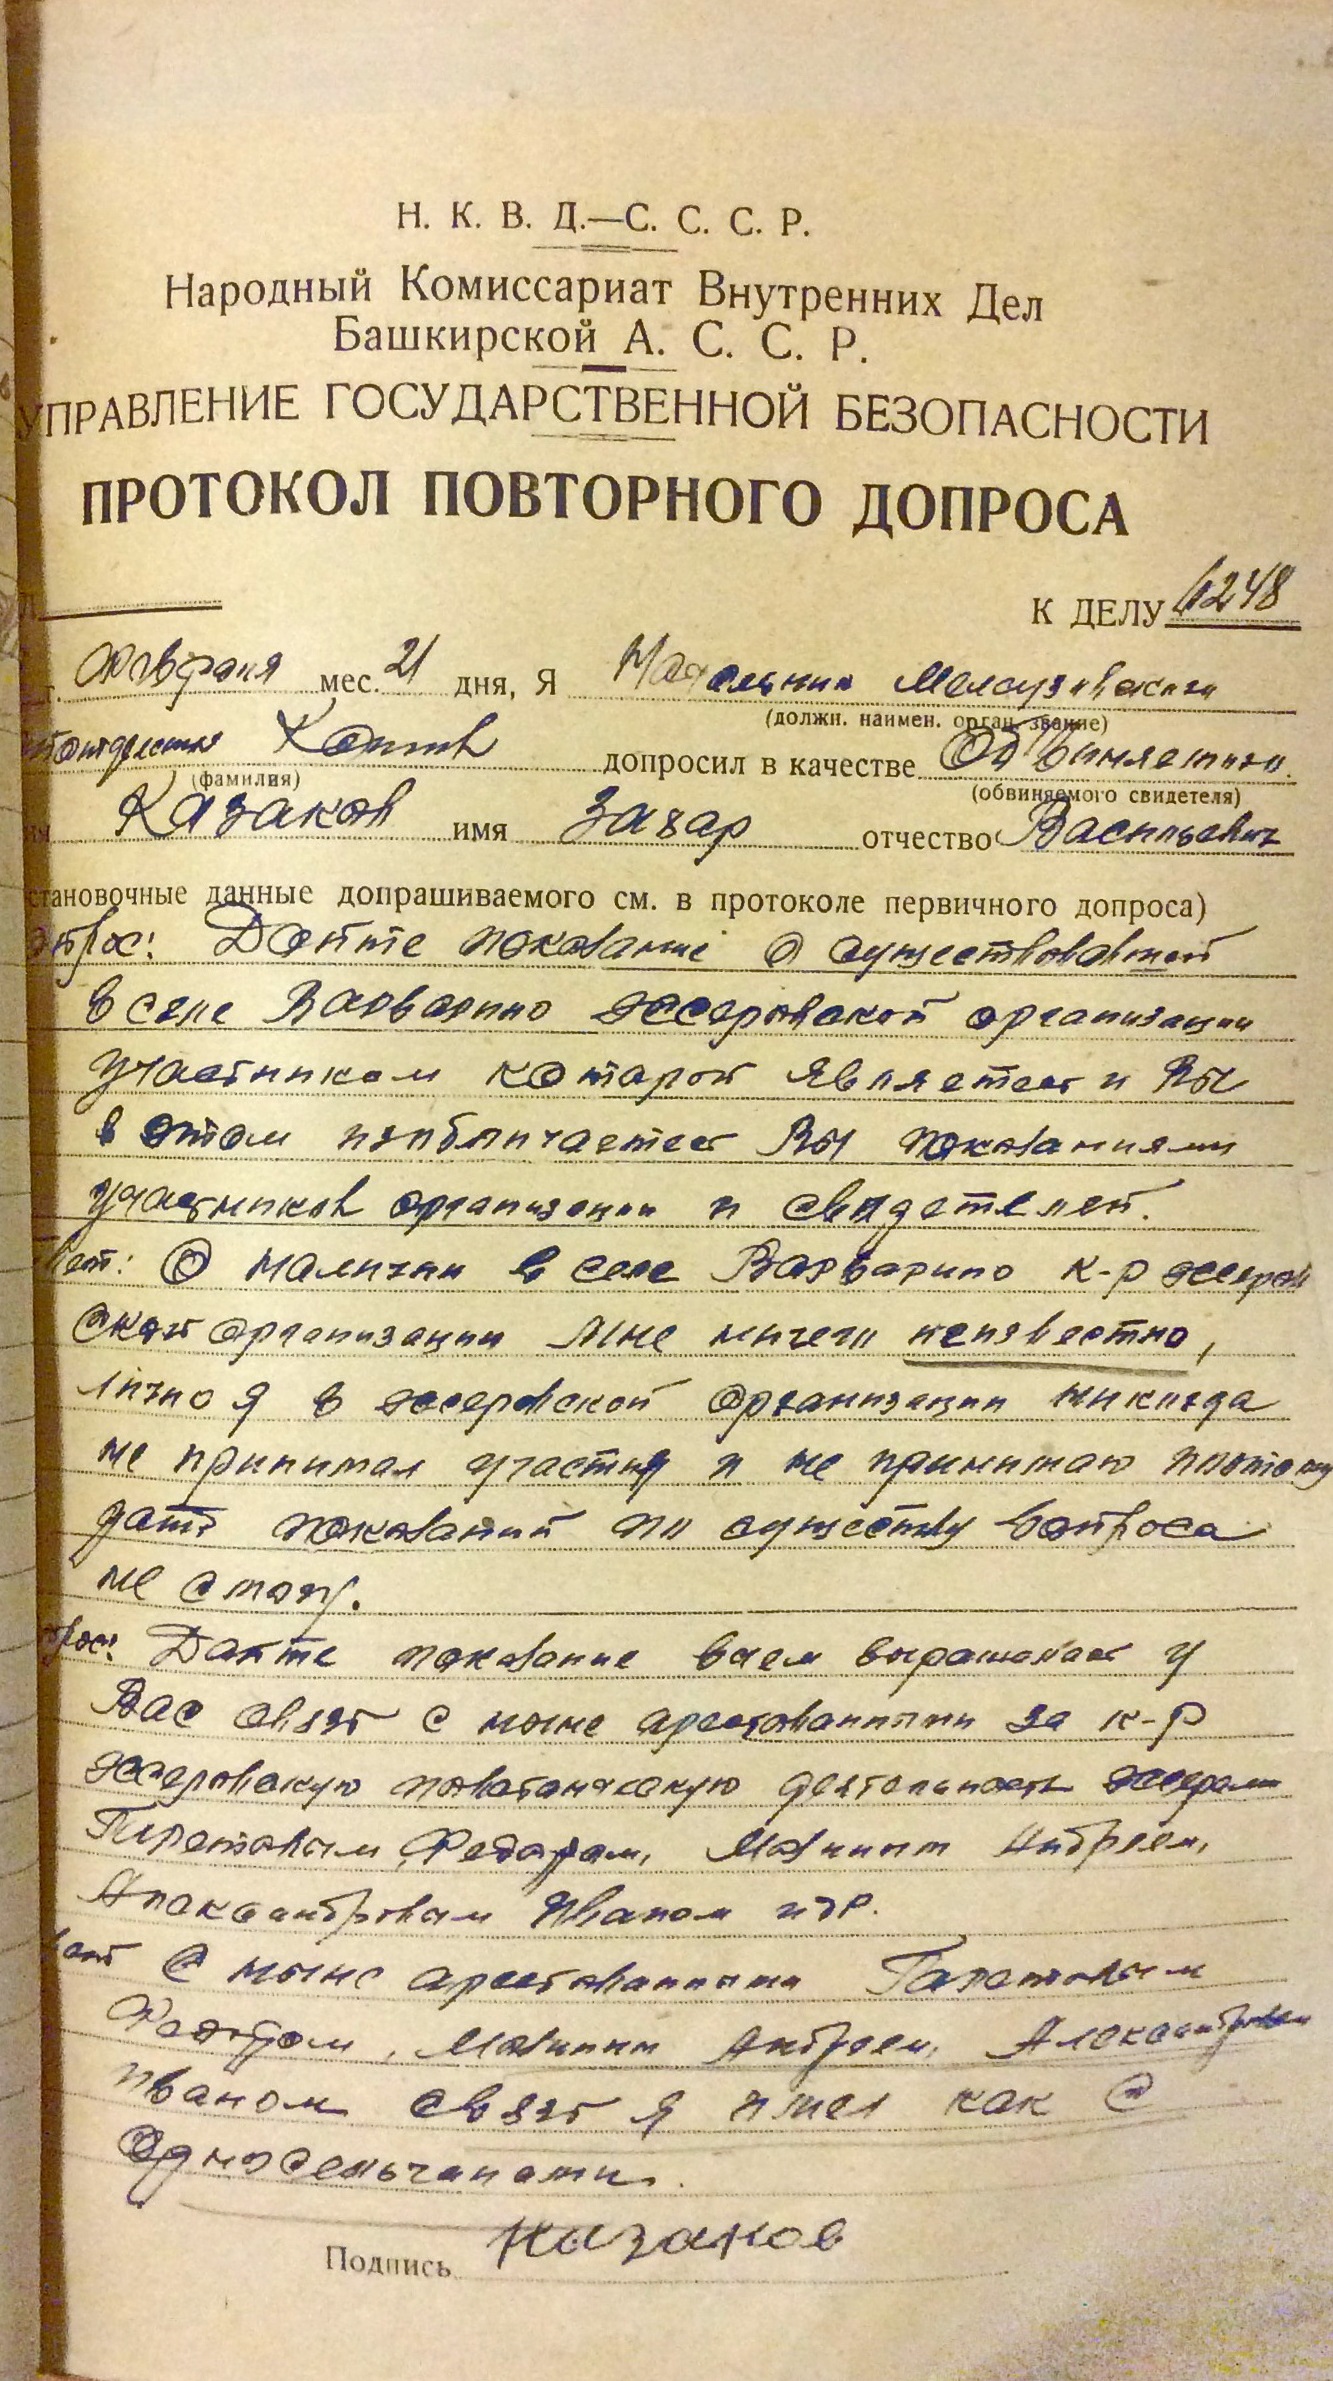 Н. К. В. Д.—С. С. С. Р.
Народный Комиссариат Внутренних Дел
Башкирской А. С. С. Р.
УПРАВЛЕНИЕ ГОСУДАРСТВЕННОЙ БЕЗОПАСНОСТИ
ПРОТОКОЛ ПОВТОРНОГО ДОПРОСА
К ДЕЛУ 6248
г. февраля мес. 21 дня, Я Начальник Мелеузовского
(должн. наимен. орган. звание)
допросил в качестве Обвиняемого
(фамилия) (обвиняемого свидетеля)
ия Казаков имя Захар отчество Васильевич
становочные данные допрашиваемого см. в протоколе первичного допроса)
опрос: Дайте показание о существовавшей
в селе Варварино эссеровской организации
участником которой является и Вы
в этом изобличаетес Вы показаниями
участников организации и свидетелей.
вет: О наличии в селе Варварино к-р эссеров
ской организации мне ничего неизвестно,
лично я в эссеровской организации никогда
не принимал участия и не принимаю поэтому
дать показаний по существу вопроса
не смогу.
прос: Дайте показание в чем выражалас у
Вас связь с ныне арестованными за к-р
эссеровскую повстанческую деятельность эссерами
Федором, Андреем,
Александровым Иваном и др.
вет С ныне арестованными
Федором, Андреем, Александровым
Иваном связь я имел как с
Односельчанами.
Подпись Казаков